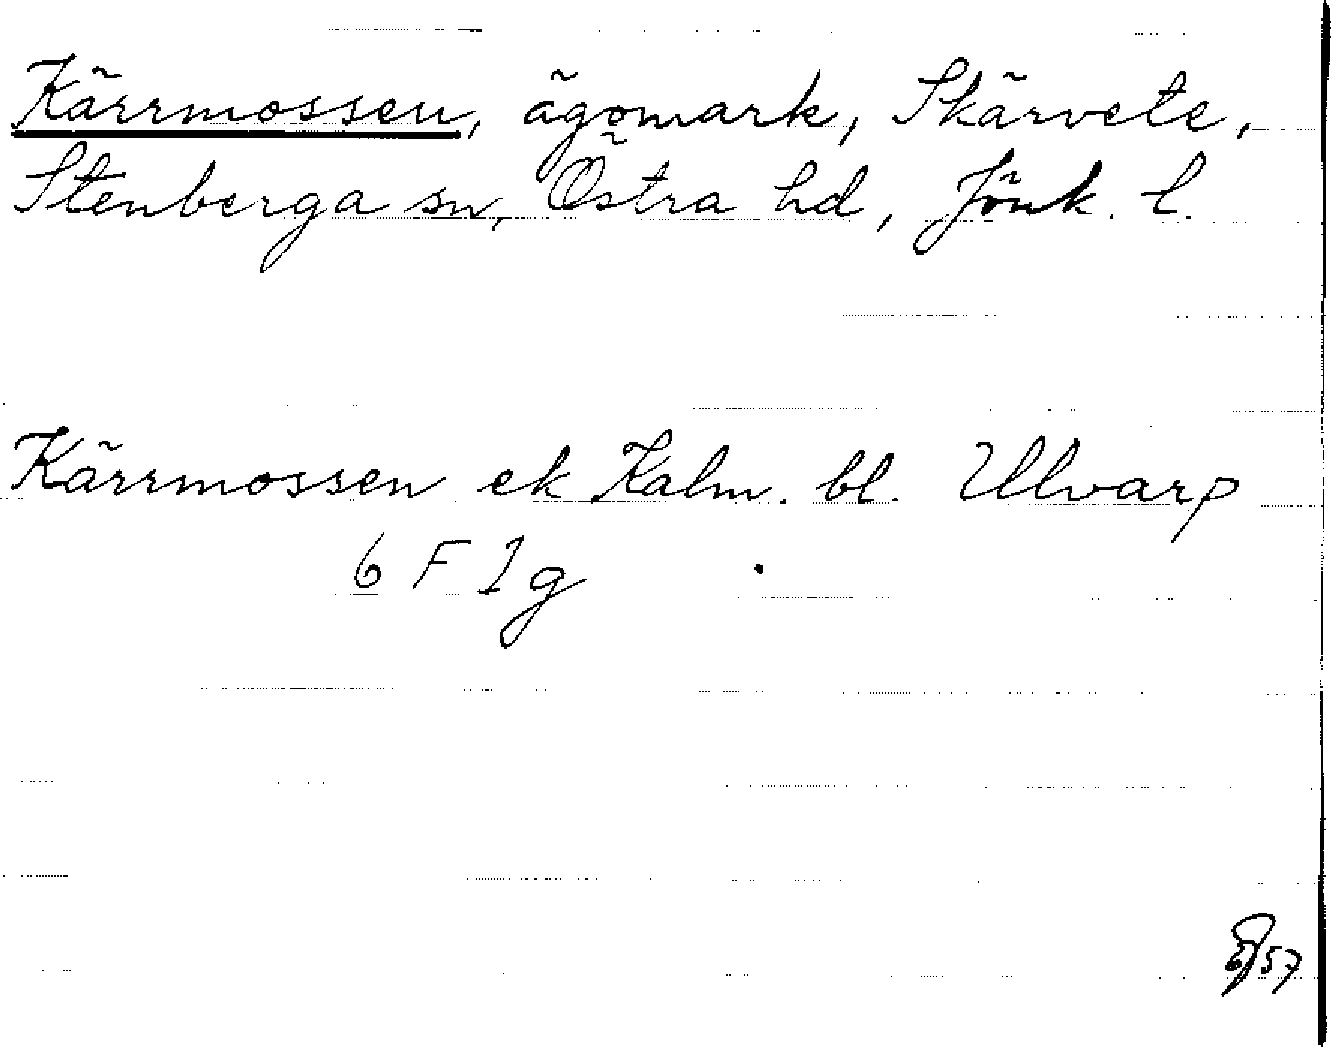 Kärrmossen, ägomark, Skärvete,
Stenberga sn, Östra hd, Jönk. l.
Kärrmossen ek Kalm. bl. Ulvarp
6 F 1 g
57